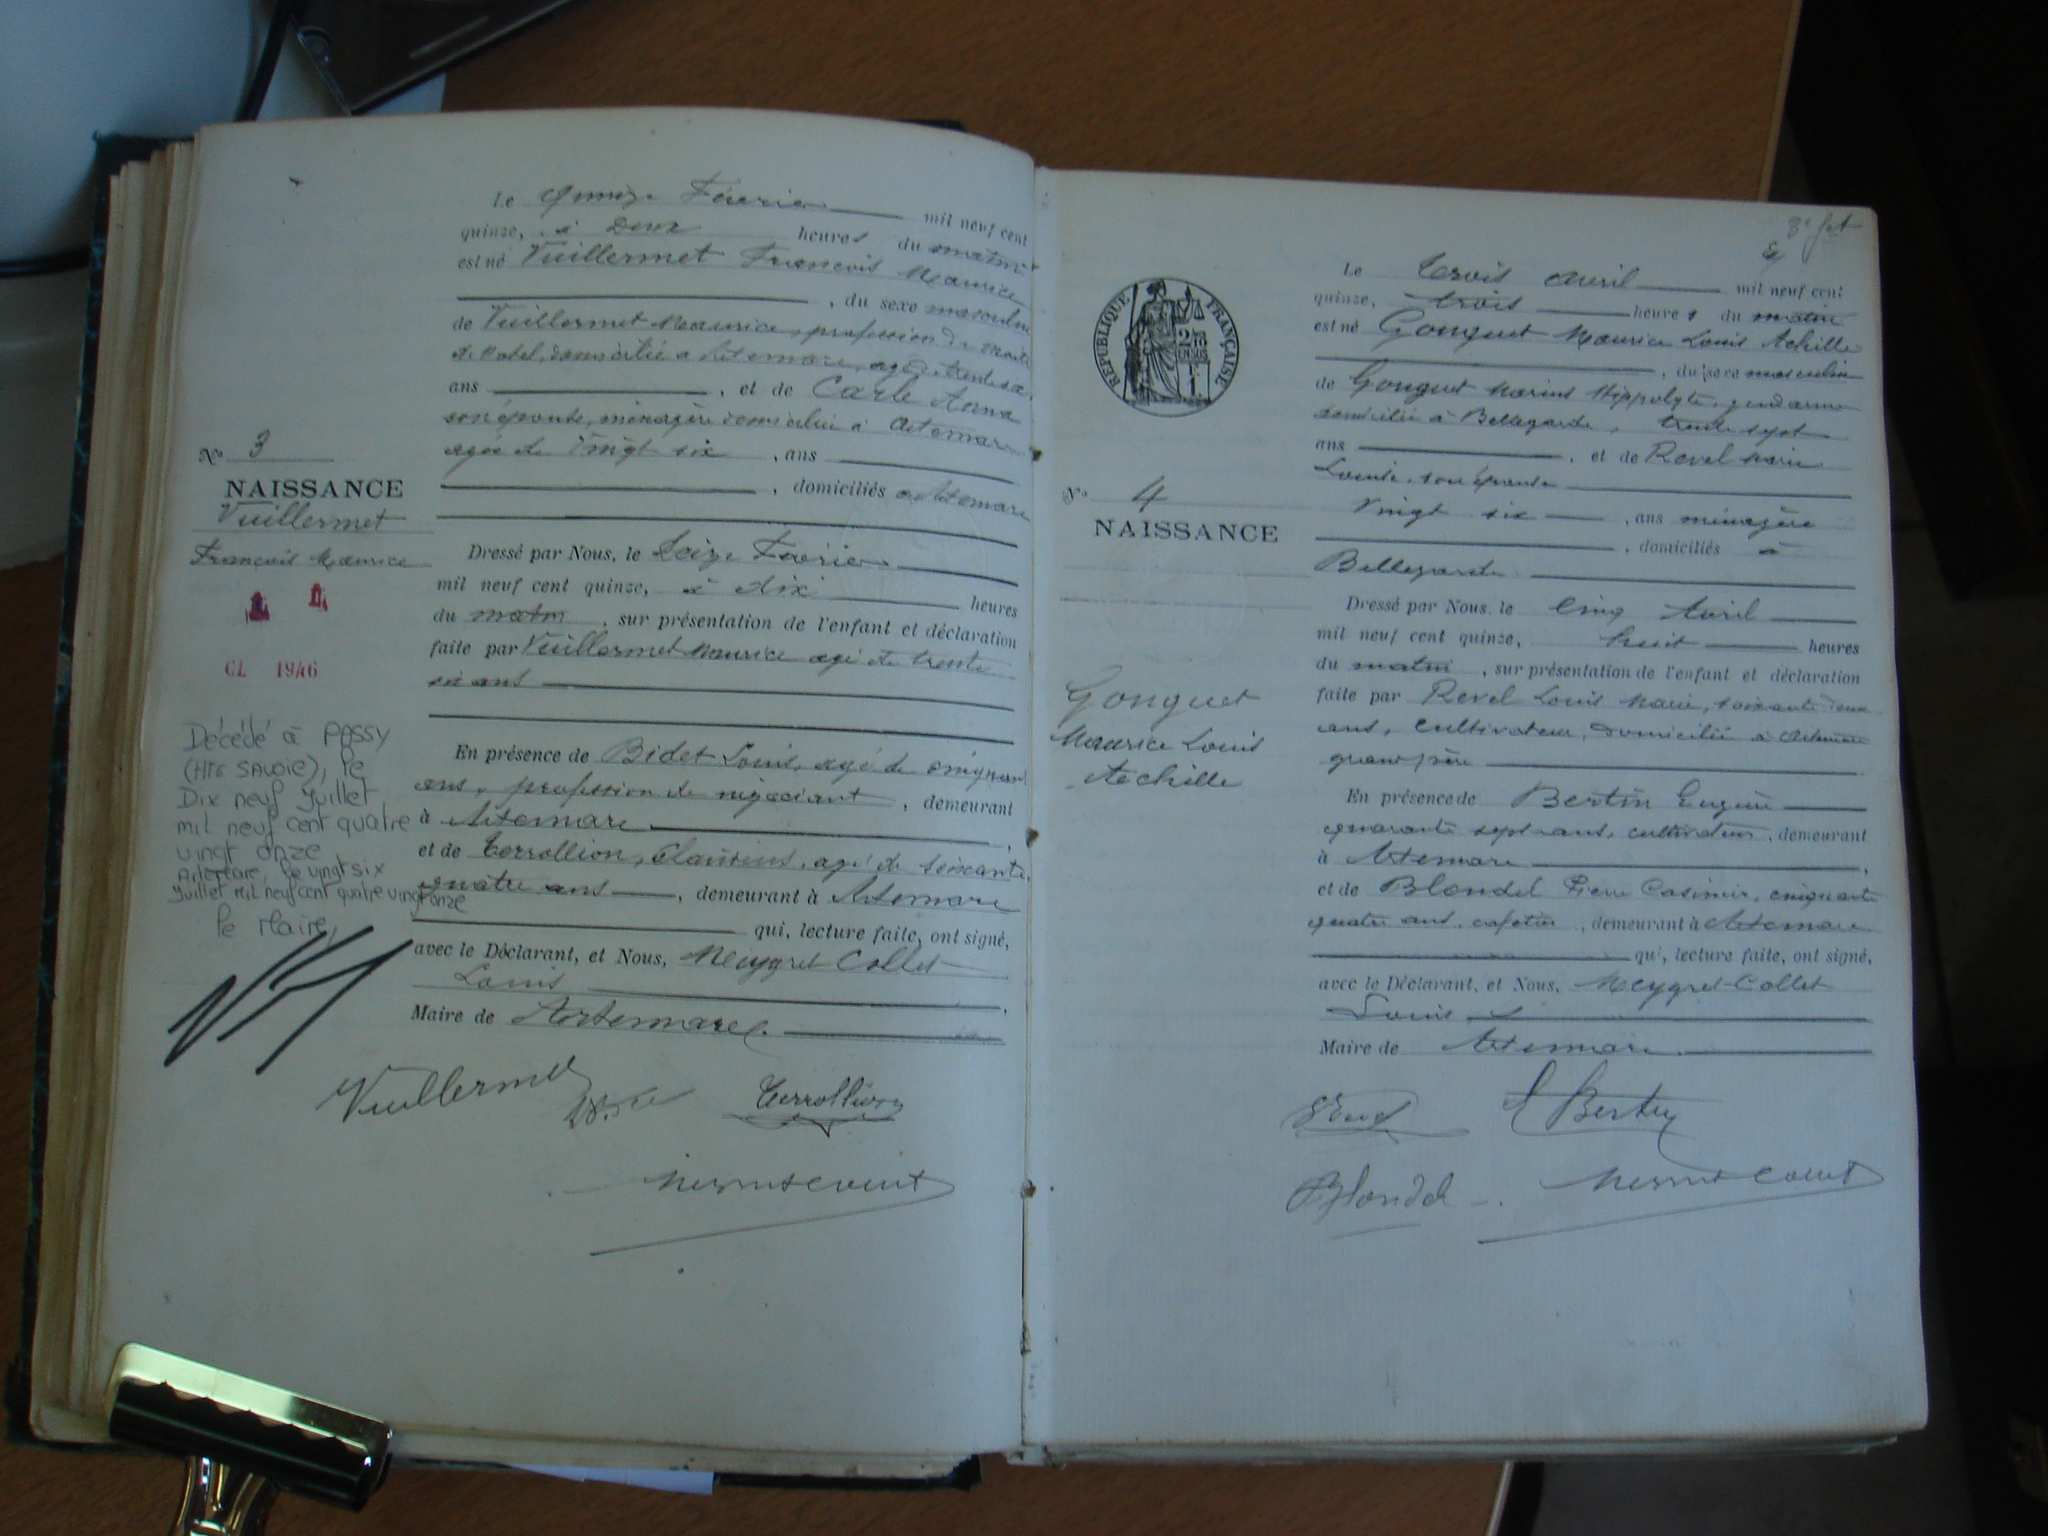 Le Quinze Février mil neuf cent
quinze, à Deux heures du matin
est né Vuillermet François Maurice
, du sexe masculin
de Vuillermet Maurice, profession de Maitre
d'hotel, domicilié à Artemare, agé de trente six
ans , et de Carle Anna
son épouse, ménagère domiciliée à Artemare
agée de Vingt six , ans
, domiciliés à Artemare
No 3
NAISSANCE
Vuillermet
François Maurice
CL 1946
Décédé à PASSY
(Hte SAVOIE), le
Dix neuf Juillet
mil neuf cent quatre
vingt onze
Artemare, le vingt six
Juillet mil neuf cent quatre vingt onze
le Maire,
Dressé par Nous, le Seize Février
mil neuf cent quinze, à dix heures
du matin , sur présentation de l'enfant et déclaration
faite par Vuillermet Maurice agé de trente
six ans
En présence de Bidet Louis, agé de cinquante
ans, profession de négociant , demeurant
à Artemare ,
et de Terrollion, Claudius, agé de soixante
quatre ans , demeurant à Artemare
qui, lecture faite, ont signé,
avec le Déclarant, et Nous, Meygret Collet
Louis ,
Maire de Artemare
Vuillermet
Terrollion
8e fet
RÉPUBLIQUE FRANÇAISE
Le trois Avril mil neuf cent
quinze, trois heures du matin
est né Gonguet Maurice Louis Achille
, du sexe masculin
de Gonguet Marius Hippolyte, gendarme
domicilié à Bellegarde, trente sept
ans , et de Revel Marie
Louise, son épouse
Vingt six , ans ménagère
, domiciliés à
Bellegarde
No 4
NAISSANCE
Gonguet
Maurice Louis
Achille
Dressé par Nous, le Cinq Avril
mil neuf cent quinze, huit heures
du matin , sur présentation de l'enfant et déclaration
faite par Revel Louis Marie, soixante deux
ans, cultivateur, domicilié à Artemare
grand père
En présence de Bertin Eugène
quarante sept ans, cultivateur, demeurant
à Artemare ,
et de Blondel Pierre Casimir, cinquante
quatre ans, cafetier , demeurant à Artemare
qui, lecture faite, ont signé,
avec le Déclarant, et Nous, Meygret-Collet
Louis
Maire de Artemare
E Bertin
Blondel